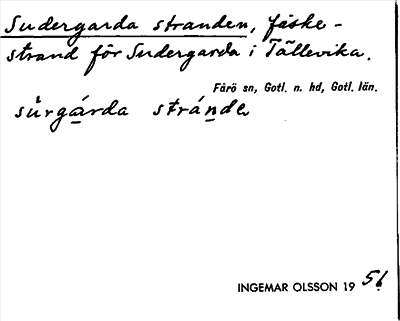 Sudergarda stranden, fiske-
strand för Sudergarda i Tällevika.
Fårö sn, Gotl. n. hd, Gotl. län.
sůrgárda stránde
INGEMAR OLSSON 19 56